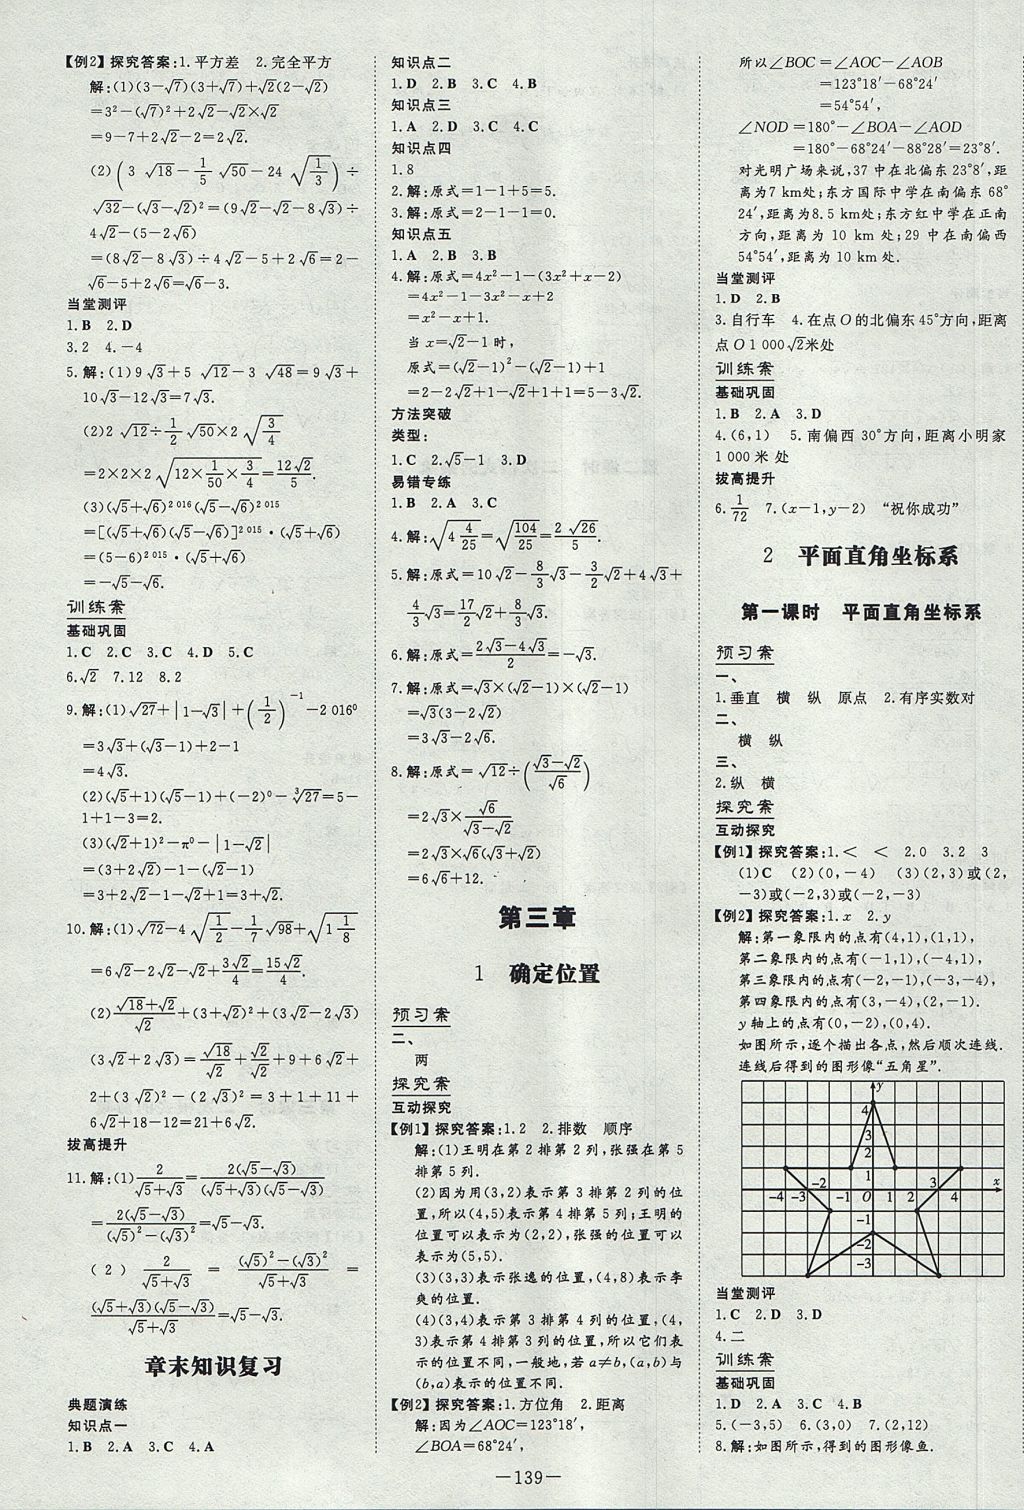 【例2】探究答案:1.平方差 2.完全平方
解:(1)(3-√7)(3+√7)+√2(2-√2)
=3²-(√7)²+2√2-√2×√2
=9-7+2√2-2=2√2.
(2)(3√18-1/5√50-24√(1/3))÷
√32-(√3-√2)²=(9√2-√2-8√3)÷
4√2-(5-2√6)
=(8√2-8√3)÷4√2-5+2√6=2-
√6-5+2√6=√6-3.
当堂测评
1.B 2.D
3.2 4.-4
5.解:(1)9√3+5√12-3√48=9√3+
10√3-12√3=7√3.
(2)2√12÷1/2√50×2√(3/4)
=2×2×2√(12×1/50×3/4)=12√2/5.
(3)(√5+√6)²⁰¹⁶(√5-√6)²⁰¹⁵
=[(√5+√6)(√5-√6)]²⁰¹⁵·(√5+√6)
=(5-6)²⁰¹⁵·(√5+√6)
=-√5-√6.
训练案
基础巩固
1.C 2.C 3.C 4.D 5.C
6.√2 7.12 8.2
9.解:(1)√27+|1-√3|+(1/2)⁻¹-2 016⁰
=3√3+(√3-1)+2-1
=4√3.
(2)(√5+1)(√5-1)+(-2)⁰-³√27=5-
1+1-3=2.
(3)(√2+1)²-π⁰-|1-√2|
=(3+2√2)-1-(√2-1)
=3+2√2-1-√2+1=3+√2.
10.解:(1)√72-4√(1/2)-1/7√98+√(1 1/8)
=6√2-2√2-√2+3√2/4=15√2/4.
(2)(√18+√2)/√2+(3+√2)²+(3√2-2√3)
(3√2+2√3)=√18/√2+√2/√2+9+6√2+
2+(3√2)²-(2√3)²=3+1+11+
6√2+18-12=21+6√2.
拔高提升
11.解:(1)2/(√5+√3)=2(√5-√3)/((√5+√3)(√5-√3))
=2(√5-√3)/((√5)²-(√3)²)=√5-√3.
(2)2/(√5+√3)=((√5)²-(√3)²)/(√5+√3)=
(√5+√3)(√5-√3)/(√5+√3)=√5-√3.
章末知识复习
典题演练
知识点一
1.B 2.A 3.C 4.A
知识点二
1.D 2.B 3.C 4.B
知识点三
1.A 2.D 3.C 4.C
知识点四
1.8
2.解:原式=1-1+5=5.
3.解:原式=2-1-1=0.
知识点五
1.A 2.B 3.B
4.解:原式=4x²-1-(3x²+x-2)
=4x²-1-3x²-x+2
=x²-x+1.
当x=√2-1时,
原式=(√2-1)²-(√2-1)+1
=2-2√2+1-√2+1+1=5-3√2.
方法突破
类型:
1.C 2.√5-1 3.D
易错专练
1.B 2.A 3.C
4.解:√(4 4/25)=√(104/25)=2√26/5.
5.解:原式=10√2-8/3√3-3/2√2+4√3+
4/3√3=17/2√2+8/3√3.
6.解:原式=(2√3-4√3)/2=-√3.
7.解:原式=√3×(√2-1)×(√2-1)
=√3(3-2√2)
=3√3-2√6.
8.解:原式=√12÷((√3-√2)/√6)
=2√3×√6/(√3-√2)
=2√3×√6(√3+√2)
=6√6+12.
第三章
1 确定位置
预习案
二、
两
探究案
互动探究
【例1】探究答案:1.2 2.排数 顺序
解:(1)王明在第2排第2列,张强在第5
排第5列.
(2)因为用(3,2)表示第3排第2列的位
置,所以(4,5)表示第4排第5列;王明的
位置可以表示为(2,2),张强的位置可以
表示为(5,5).
(3)(3,3)表示张逸的位置,(4,8)表示李
爽的位置.
(4)(3,4)表示第3排第4列的位置,(4,
3)表示第4排第3列的位置,所以它们表
示的位置不同,一般地,若a≠b,(a,b)与
(b,a)表示的位置不同.
【例2】探究答案:1.方位角 2.距离
解:因为∠AOC=123°18′,
∠BOA=68°24′,
所以∠BOC=∠AOC-∠AOB
=123°18′-68°24′
=54°54′,
∠NOD=180°-∠BOA-∠AOD
=180°-68°24′-88°28′=23°8′.
对光明广场来说,37中在北偏东23°8′,距
离为7 km处;东方国际中学在南偏东68°
24′,距离为8.5 km处;东方红中学在正南
方向,距离为10 km处;29中在南偏西
54°54′,距离为10 km处.
当堂测评
1.D 2.B
3.自行车 4.在点O的北偏东45°方向,距离
点O 1 000√2米处
训练案
基础巩固
1.B 2.A 3.D
4.(6,1) 5.南偏西30°方向,距离小明家
1 000米处
拔高提升
6.1/72 7.(x-1,y-2) “祝你成功”
2 平面直角坐标系
第一课时 平面直角坐标系
预习案
一、
1.垂直 横 纵 原点 2.有序实数对
二、
横 纵
三、
2.纵 横
探究案
互动探究
【例1】探究答案:1.< < 2.0 3.2 3
(1)C (2)(0,-4) (3)(2,3)或(2,
-3)或(-2,3)或(-2,-3)
【例2】探究答案:1.x 2.y
解:第一象限内的点有(4,1),(1,1),
第二象限内的点有(-1,1),(-4,1),
第三象限内的点有(-2,-1),(-3,-4),
第四象限内的点有(3,-4),(2,-1).
y轴上的点有(0,-2),(0,4).
如图所示,逐个描出各点,然后顺次连线.
连线后得到的图形像“五角星”.
y
4
3
2
1
-2 3 x
-4 -3 -1 O 1 2 4
-1
-2
-3
当堂测评
1.C 2.D 3.D
4.二
训练案
基础巩固
1.D 2.A 3.C 4.B
5.(-3,5) 6.(3,0) 7.(2,12)
8.解:如图所示,得到的图形像鱼.
—139—